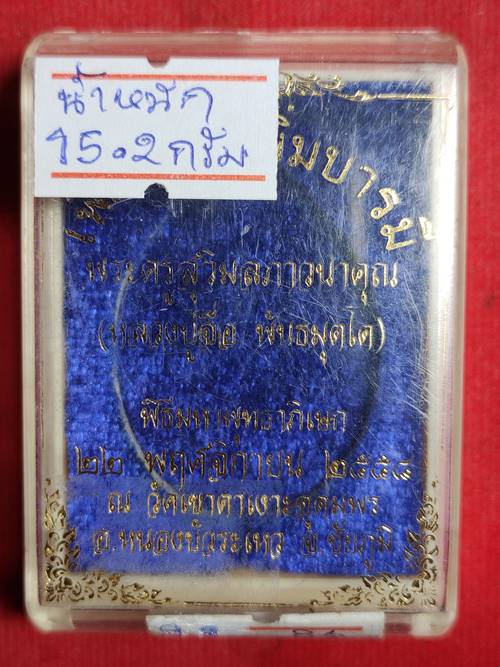 น้ำหนัก
15.2 กรัม
เพิ่มบารมี
พระครูสุวิมลภาวนาคุณ
(หลวงปู่จือ พันธมุตโต)
พิธีมหาพุทธาภิเษก
๒๒ พฤศจิกายน ๒๕๕๔
ณ วัดเขาตาเงาะอุดมพร
อ.หนองบัวระเหว จ.ชัยภูมิ